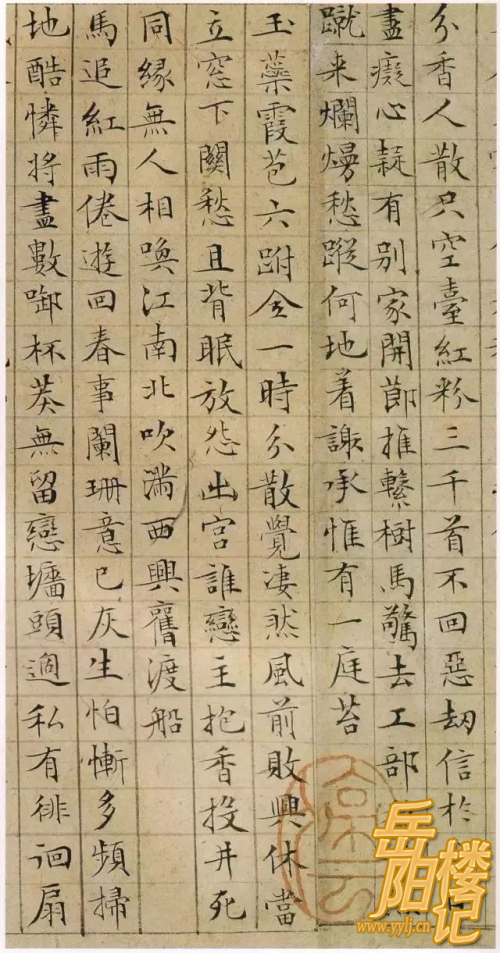 分香人散只空臺紅粉三千首不回惡劫信於
盡癡心疑有别家開節推繫樹馬驚去工部
蹴来爛熳愁蹤何地着謝承惟有一庭苔
玉蘂霞苞六跗全一時分散覺凄然風前敗興休當
立窓下關愁且背眠放怨出宮誰戀主抱香投井死
同緣無人相喚江南北吹滿西興舊渡船
馬追紅雨倦遊回春事闌珊意已灰生怕漸多頻掃
地酷憐將盡數啣杯莫無留戀墻頭過私有徘徊扇
岳阳楼记
www.yylj.cn